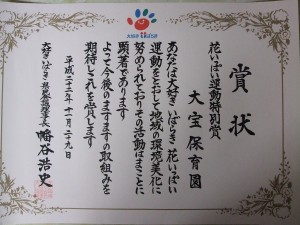 大好き いばらき
賞状
花いっぱい運動特別賞
大宝保育園
あなたは大好き いばらき 花いっぱい
運動をとおして地域の環境美化に
努められておりその活動はまことに
顕著であります
よって今後のますますの取組みを
期待しこれを賞します
平成二十三年十一月二十九日
大好き いばらき 県民会議理事長
幡谷浩史